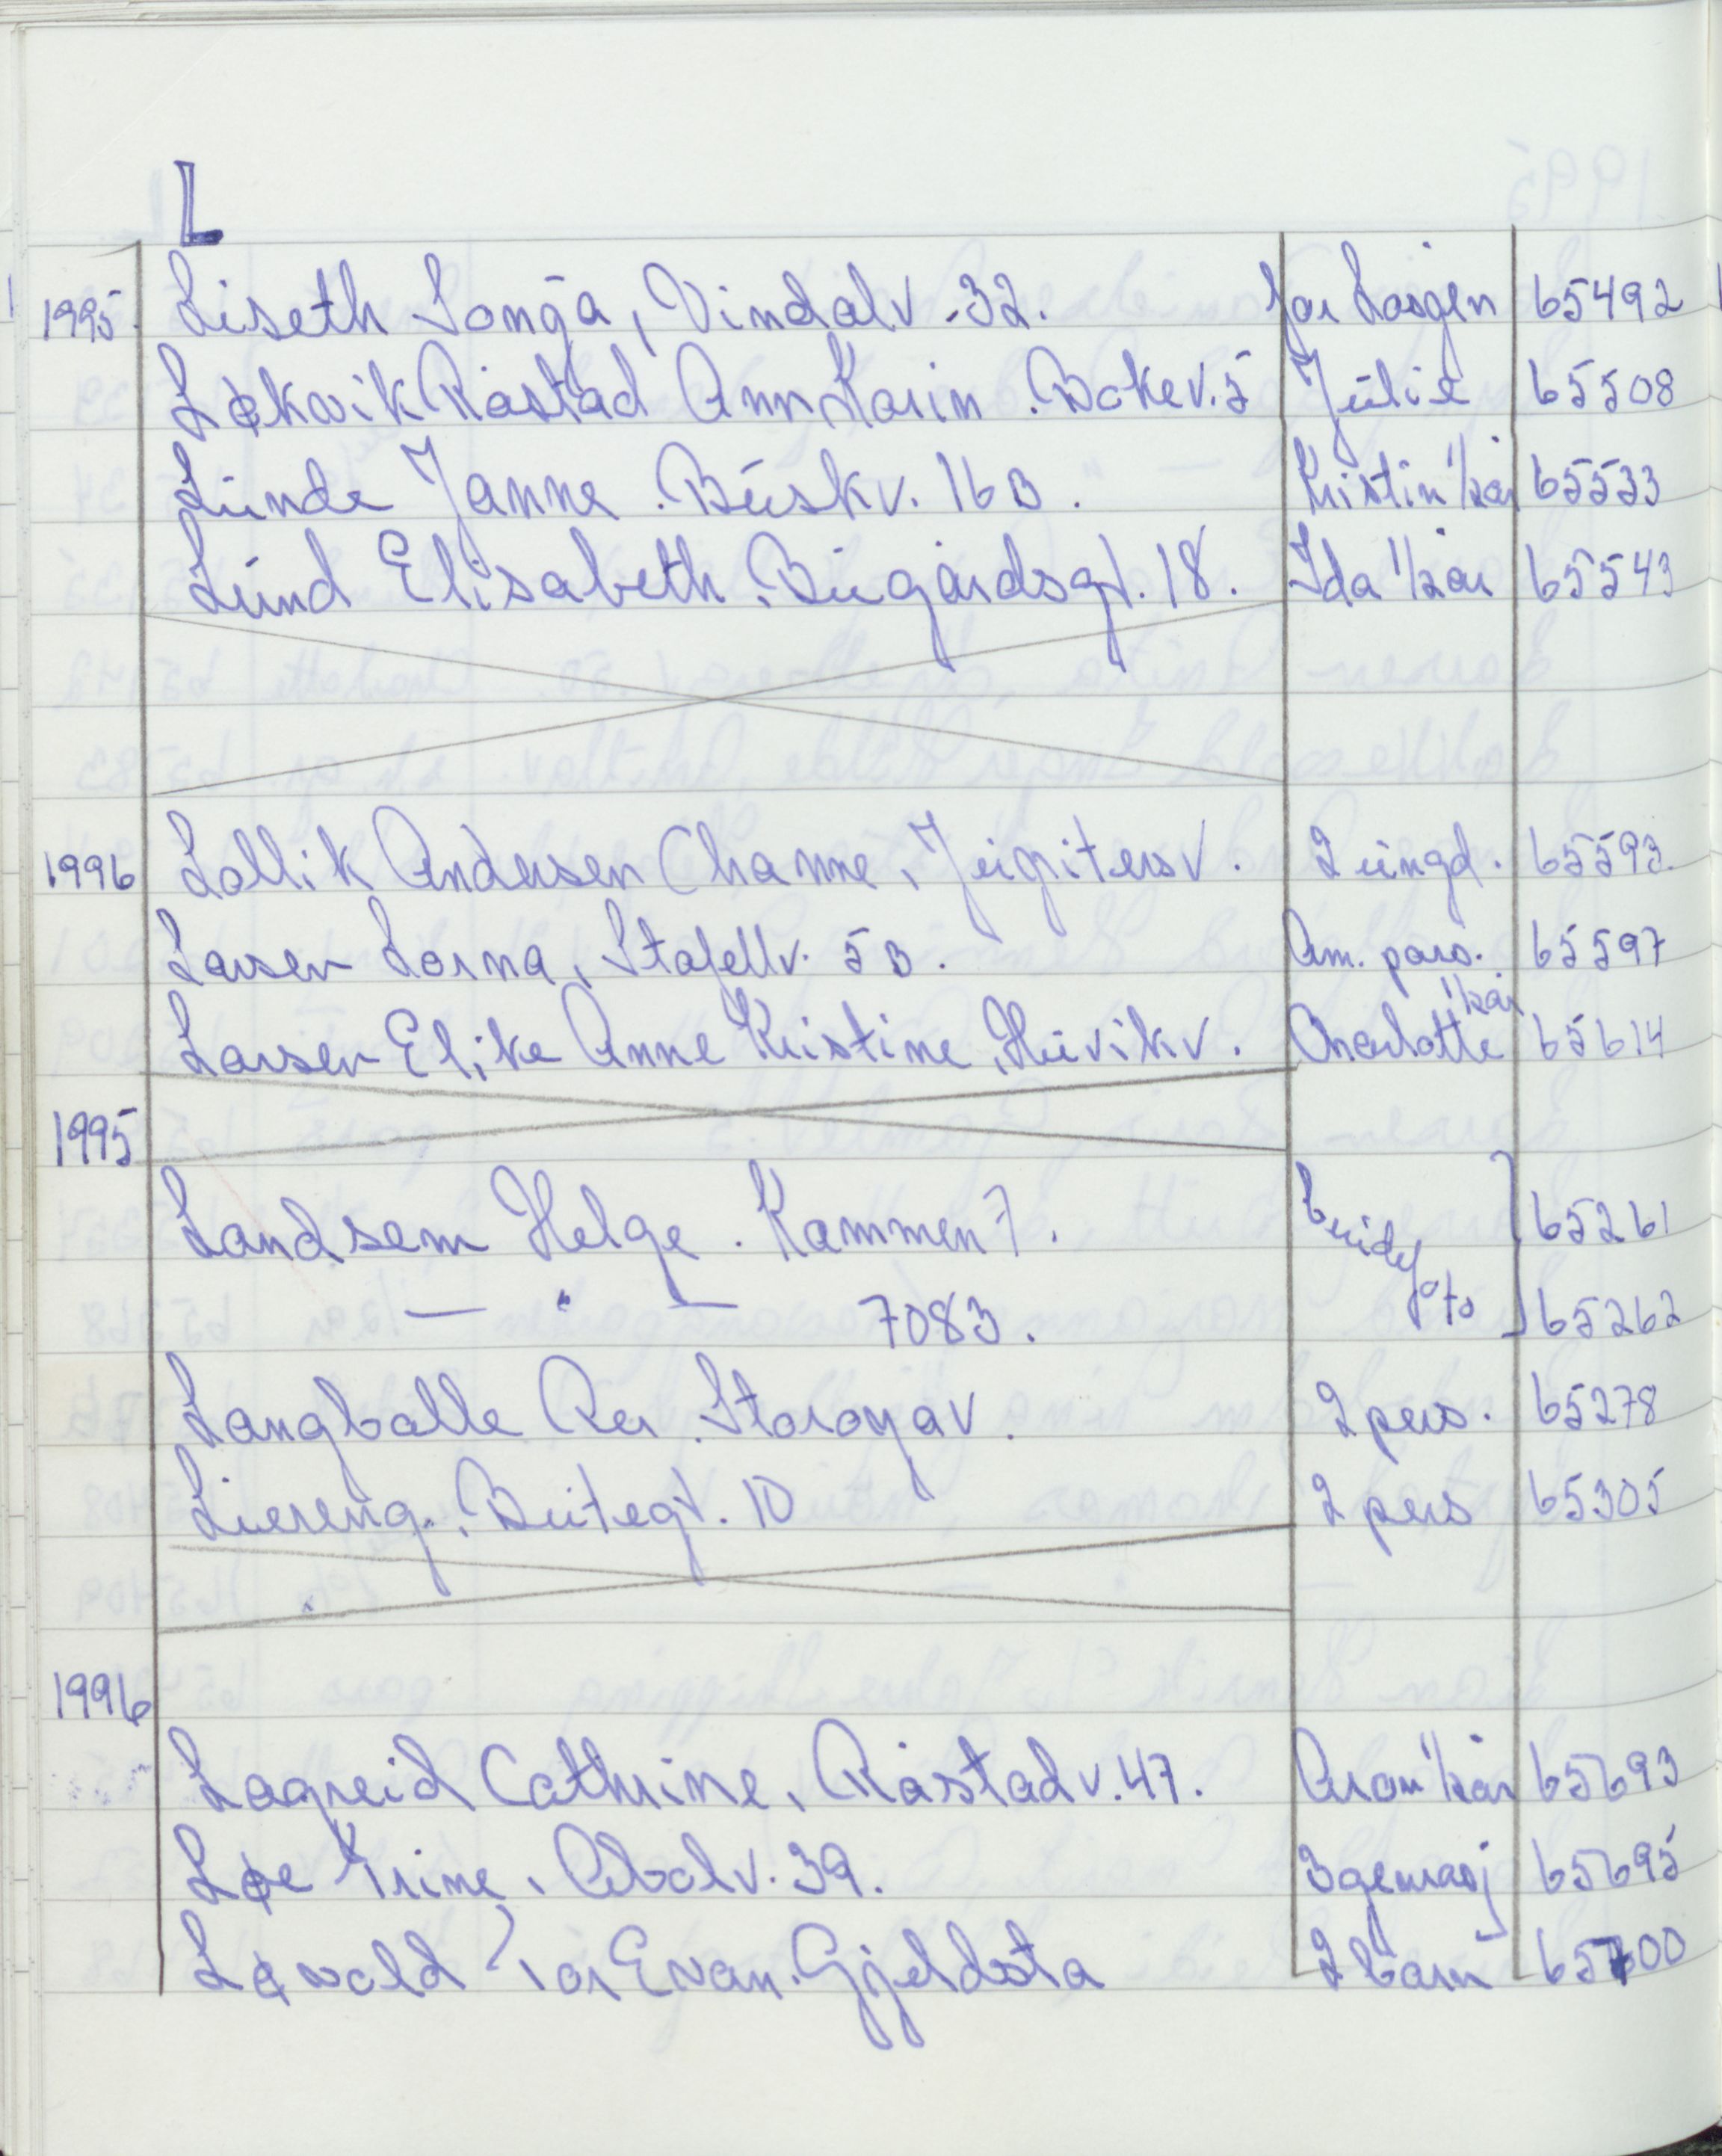 L
1995 Liseth Sonja, Vindalv. 32. Jørgen 65492
Løkvik Råstad Ann Karin. Bakev. 5 Julie 65508
Lunde Janne. Buskv. 16B. Kristin 1/2 år 65533
Lund Elisabeth. Bugårdsgt. 18. Ida 1/2 år 65543
1996 Lollik Andersen Channe, Jupitersv. 2 ungd. 65593
Larsen Lorna, Stafettv. 5B. Am. pars. 65597
Larsen Elike Anne Kristine, Huvikv. Charlotte 1/2 år 65614
1995
Landsem Helge. Kammen 7. 65261
— " — 7083. 65262
Langballe Per. Storøyav. 2 pers. 65278
Liereng. Buitegt. 10 2 pers 65305
1996
Lagreid Cathrine, Råstadv. 47. Aron 1/2 år 65693
Løe Trine, Abolv. 39. 3 generasj 65695
Løvold Tor Evan. Gjeldsta 2 barn 65700